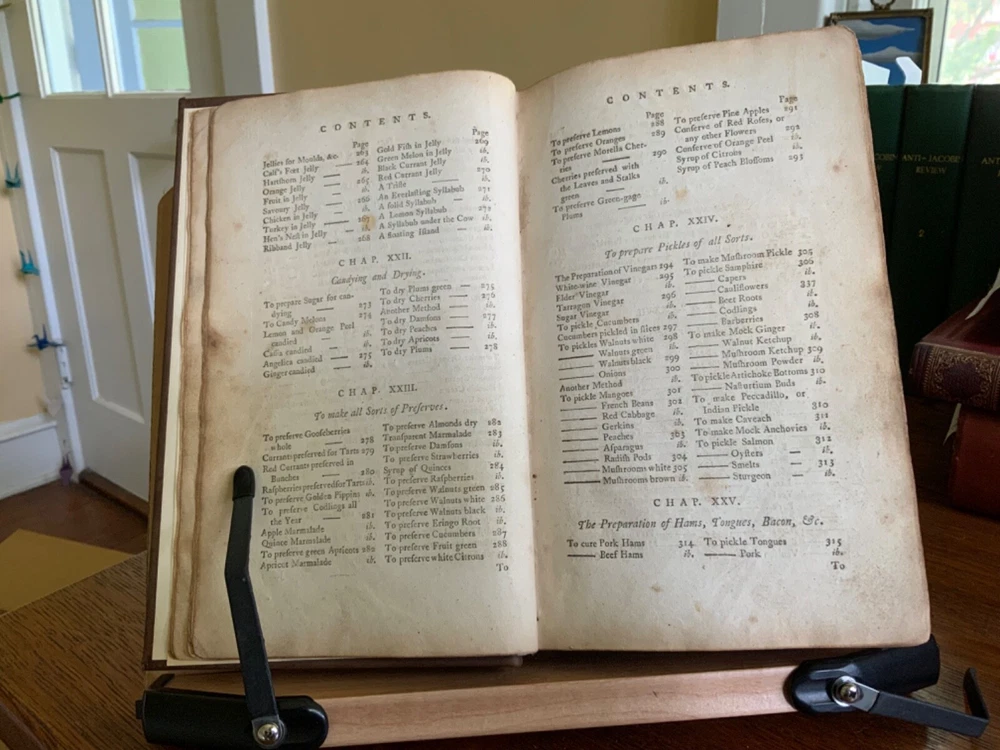 CONTENTS.
Page
Jellies for Moulds, &c. 263
Calf's Feet Jelly 264
Hartshorn Jelly ib.
Orange Jelly 265
Fruit in Jelly ib.
Savoury Jelly 266
Chicken in Jelly ib.
Turkey in Jelly 267
Hen's Nest in Jelly ib.
Ribband Jelly 268
Page
Gold Fish in Jelly 269
Green Melon in Jelly ib.
Black Currant Jelly ib.
Red Currant Jelly 270
A Trifle ib.
An Everlasting Syllabub 271
A solid Syllabub ib.
A Lemon Syllabub 272
A Syllabub under the Cow ib.
A floating Island ib.
CHAP. XXII.
Candying and Drying.
To prepare Sugar for can-
dying 273
To Candy Melons 274
Lemon and Orange Peel
candied ib.
Cassia candied ib.
Angelica candied 275
Ginger candied ib.
To dry Plums green 275
To dry Cherries 276
Another Method ib.
To dry Damsons 277
To dry Peaches ib.
To dry Apricots ib.
To dry Plums 278
CHAP. XXIII.
To make all Sorts of Preserves.
To preserve Gooseberries
whole 278
Currants preserved for Tarts 279
Red Currants preserved in
Bunches 280
Raspberries preserved for Tarts ib.
To preserve Golden Pippins ib.
To preserve Codlings all
the Year 281
Apple Marmalade ib.
Quince Marmalade ib.
To preserve green Apricots 282
Apricot Marmalade ib.
To preserve Almonds dry 282
Transparent Marmalade 283
To preserve Damsons ib.
To preserve Strawberries ib.
Syrup of Quinces 284
To preserve Raspberries ib.
To preserve Walnuts green 285
To preserve Walnuts white 286
To preserve Walnuts black ib.
To preserve Eringo Root ib.
To preserve Cucumbers 287
To preserve Fruit green 288
To preserve white Citrons ib.
To
CONTENTS.
Page
To preserve Lemons 288
To preserve Oranges 289
To preserve Morella Cher-
ries 290
Cherries preserved with
the Leaves and Stalks
green ib.
To preserve Green-gage
Plums ib.
Page
To preserve Pine Apples 291
Conserve of Red Roses, or
any other Flowers
Conserve of Orange Peel 292
Syrup of Citrons ib.
Syrup of Peach Blossoms 293
CHAP. XXIV.
To prepare Pickles of all Sorts.
The Preparation of Vinegars 294
White-wine Vinegar 295
Elder Vinegar ib.
Tarragon Vinegar 296
Sugar Vinegar ib.
To pickle Cucumbers ib.
Cucumbers pickled in slices 297
To pickles Walnuts white 298
—— Walnuts green ib.
—— Walnuts black 299
—— Onions 300
Another Method ib.
To pickle Mangoes 301
—— French Beans 302
—— Red Cabbage ib.
—— Gerkins ib.
—— Peaches 303
—— Asparagus ib.
—— Radish Pods 304
—— Mushrooms white 305
—— Mushrooms brown ib.
To make Mushroom Pickle 305
To pickle Samphire 306
—— Capers ib.
—— Cauliflowers 337
—— Beet Roots ib.
—— Codlings ib.
—— Barberries 308
To make Mock Ginger ib.
—— Walnut Ketchup ib.
—— Mushroom Ketchup 309
—— Mushroom Powder ib.
To pickle Artichoke Bottoms 310
—— Nasturtium Buds ib.
To make Peccadillo, or
Indian Pickle 310
To make Caveach 311
To make Mock Anchovies ib.
To pickle Salmon 312
—— Oysters ib.
—— Smelts 313
—— Sturgeon ib.
CHAP. XXV.
The Preparation of Hams, Tongues, Bacon, &c.
To cure Pork Hams 314
—— Beef Hams ib.
To pickle Tongues 315
—— Pork ib.
To
ANTI-JACOBIN
REVIEW
2